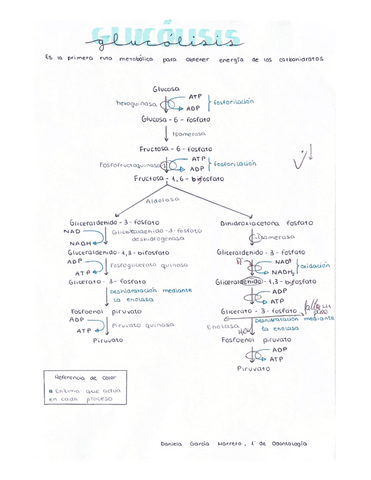 GLUCÓLISIS
glucólisis
Es la primera ruta metabólica para obtener energía de los carbohidratos
Glucosa
hexoquinasa ATP ADP fosforilación
Glucosa - 6 - fosfato
Isomerasa
Fructosa - 6 - fosfato
Fosfofructoquinasa ATP ADP fosforilación
Fructosa - 1,6 - bifosfato
Aldolasa
Gliceraldehido - 3 - fosfato
NAD Gliceraldehido - 3 - fosfato
NADH deshidrogenasa
Gliceraldehido - 1,3 - bifosfato
ADP Fosfoglicerato quinasa
ATP
Glicerato - 3 - fosfato
Deshidratación mediante
la enolasa
Fosfoenol piruvato
ADP Piruvato quinasa
ATP
Piruvato
Dihidroxiacetona fosfato
Isomerasa
Gliceraldehido - 3 - fosfato
Pi NAD⁺ NADH₂ oxidación
Gliceraldehido - 1,3 - bifosfato
ADP
ATP
Glicerato - 3 - fosfato
Enolasa H₂O Deshidratación mediante
la enolasa
Fosfoenol piruvato
ADP
ATP
Piruvato
Referencia de color
Enzima que actúa
en cada proceso
Daniela García Marrero, 1º de Odontología